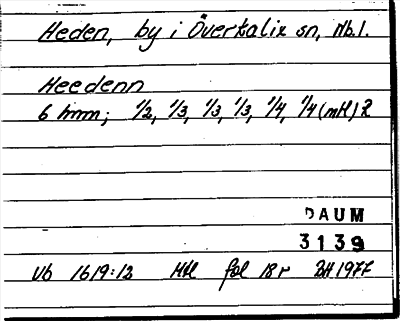 Heden, by i Överkalix sn, Nb.l.
Heedenn
6 hmm; 1/2, 1/3, 1/3, 1/3, 1/4, 1/4 (mtl)
DAUM
3139
Vb 1619:12 Mtl fol 18r BH 1977